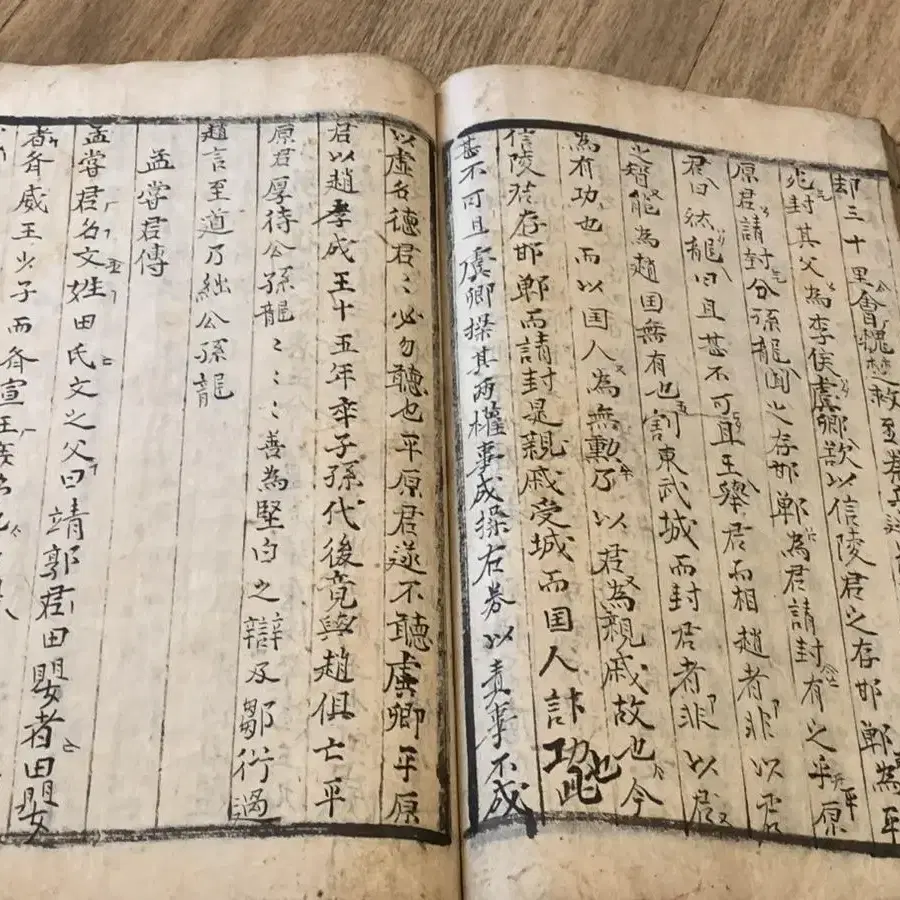 却三十里會魏楚救至
死封其父為李侯虞卿欲以信陵君之存邯鄲為平
原君請封公孫龍聞之存邯鄲為君請封有之乎平原
君曰然龍曰且甚不可且王舉君而相趙者非以君
之智能為趙国無有也割東武城而封君者非以君
為有功也而以国人為無勳乃以君為親戚故也今
信陵君存邯鄲而請封是親戚受城而国人計功也此
甚不可且虞卿操其两權事成操右券以責事不成
以虛名德君〻必勿聽也平原君遂不聽虞卿平原
君以趙孝成王十五年卒子孫代後竟與趙俱亡平
原君厚待公孫龍〻〻善為堅白之辯及鄒衍過
趙言至道乃絀公孫龍
孟嘗君傳
孟嘗君名文姓田氏文之父曰靖郭君田嬰者田嬰
者齊威王少子而齊宣王庶弟也